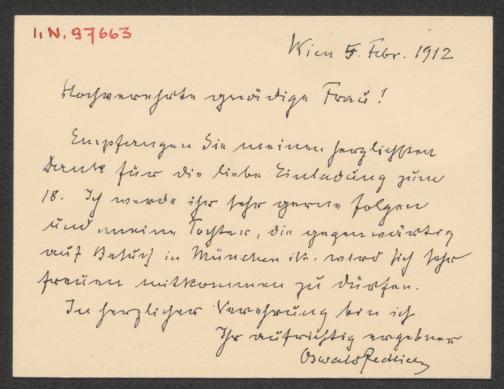 I.N. 97663
Wien 5. Febr. 1912
Hochverehrte gnädige Frau!
Empfangen Sie meinen herzlichsten
Dank für die liebe Einladung zum
18. Ich werde ihr sehr gerne folgen
und meine Tochter, die gegenwärtig
auf Besuch in München ist, wird sich sehr
freuen mitkommen zu dürfen.
In herzlicher Verehrung bin ich
Ihr aufrichtig ergebner
Oswald Redlich